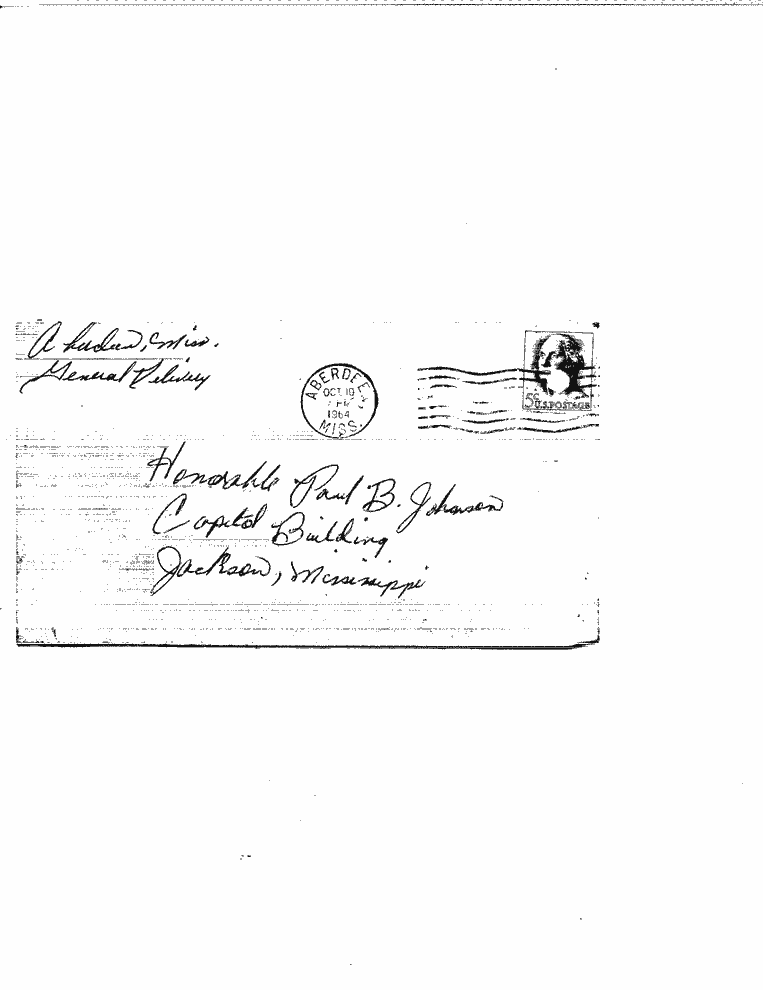 Aberdeen, Miss.
General Delivery
ABERDEEN
OCT 19
PM
1964
MISS.
5¢ U.S. POSTAGE
Honorable Paul B. Johnson
Capitol Building
Jackson, Mississippi